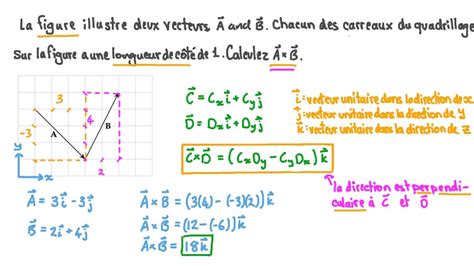 La figure illustre deux vecteurs, A⃗ and B⃗. Chacun des carreaux du quadrillage
sur la figure a une longueur de côté de 1. Calculez A⃗×B⃗.
3
-3
A
4
B
2
y
x
C⃗ = Cₓi⃗ + Cᵧj⃗
D⃗ = Dₓi⃗ + Dᵧj⃗
C⃗×D⃗ = (CₓDᵧ - CᵧDₓ)k⃗
i⃗: vecteur unitaire dans la direction de x
j⃗: vecteur unitaire dans la direction de y
k⃗: vecteur unitaire dans la direction de z
la direction est perpendi-
culaire à C⃗ et D⃗
A⃗ = 3i⃗ - 3j⃗
B⃗ = 2i⃗ + 4j⃗
A⃗×B⃗ = (3(4) - (-3)(2))k⃗
A⃗×B⃗ = (12 - (-6))k⃗
A⃗×B⃗ = 18k⃗